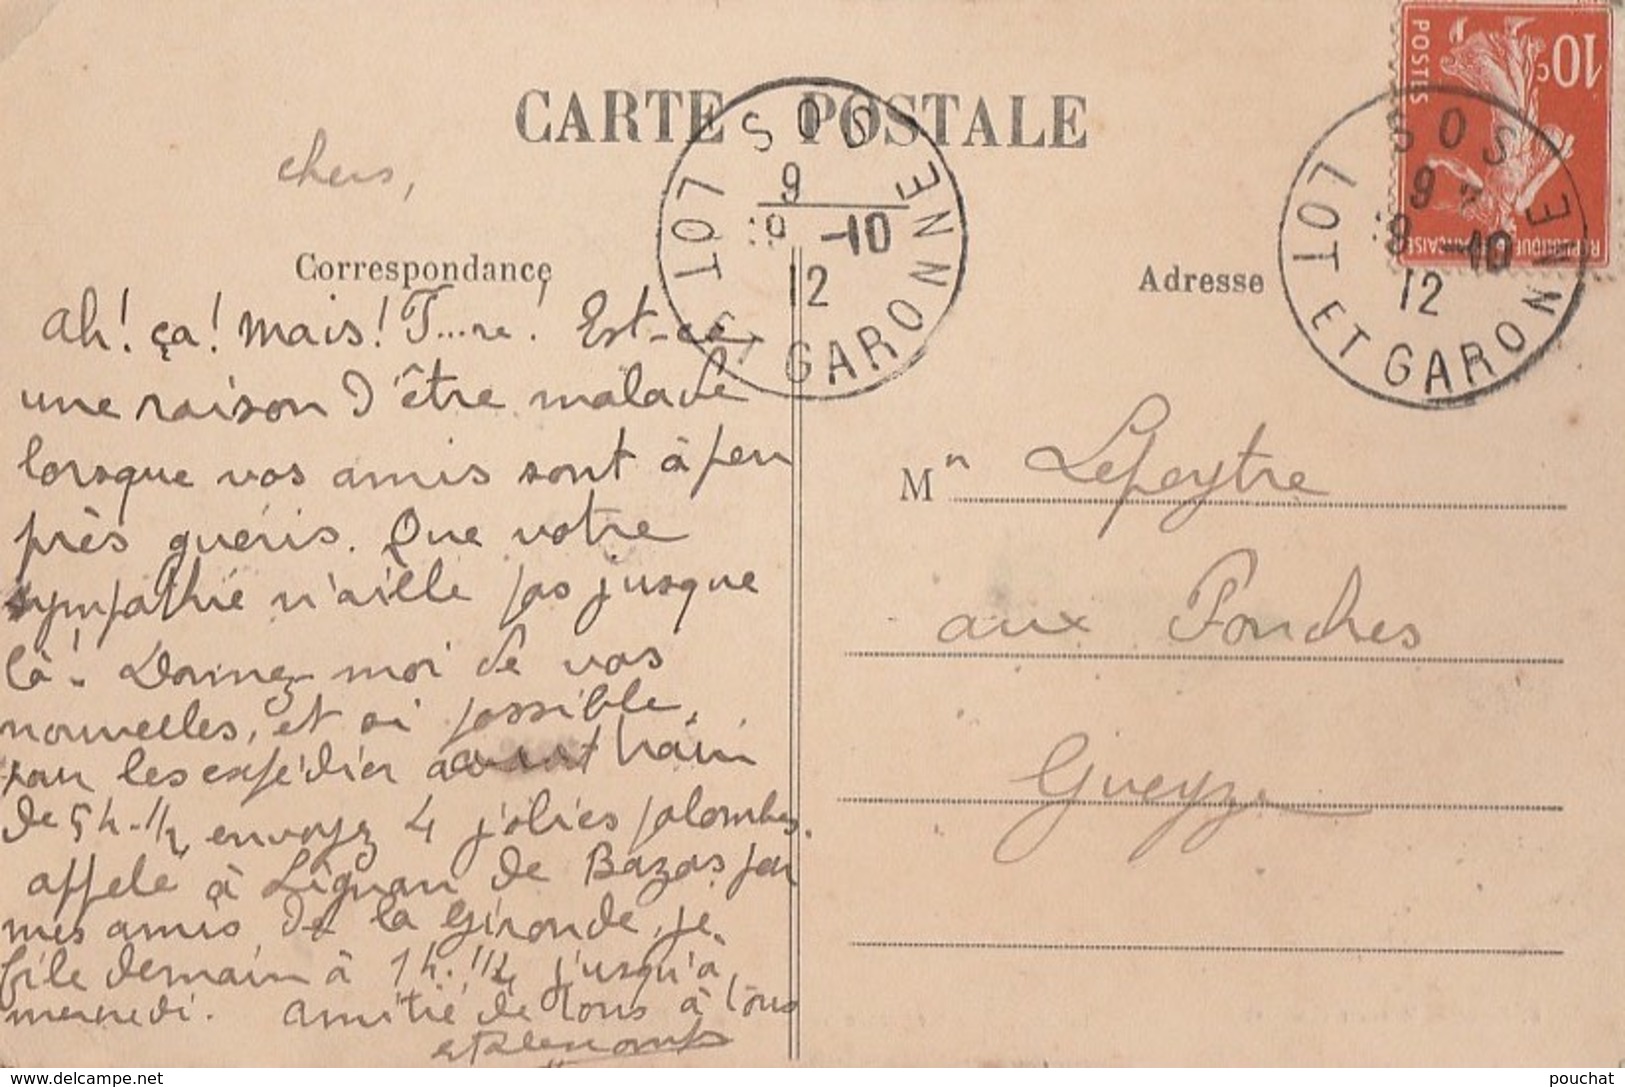 CARTE POSTALE
chers,
Correspondance
Ah! ça! mais! T...re! Est-ce
une raison d'être malade
lorsque vos amis sont à peu
près guéris. Que votre
sympathie n'aille pas jusque
là! Donnez-moi de vos
nouvelles, et si possible,
pour les expédier avant train
de 5 h. 1/2, envoyez 4 jolies palombes.
appelé à Lignan de Bazas par
mes amis de la Gironde, je
file demain à 1 h. 1/2 jusqu'à
mercredi. Amitié de tous à tous
SOS
9
19 -10
12
LOT ET GARONNE
10c
POSTES
REPUBLIQUE FRANÇAISE
SOS
9
19 -10
12
LOT ET GARONNE
Adresse
Mr Lepeytre
aux Fouches
Gueyze
www.delcampe.net
pouchat